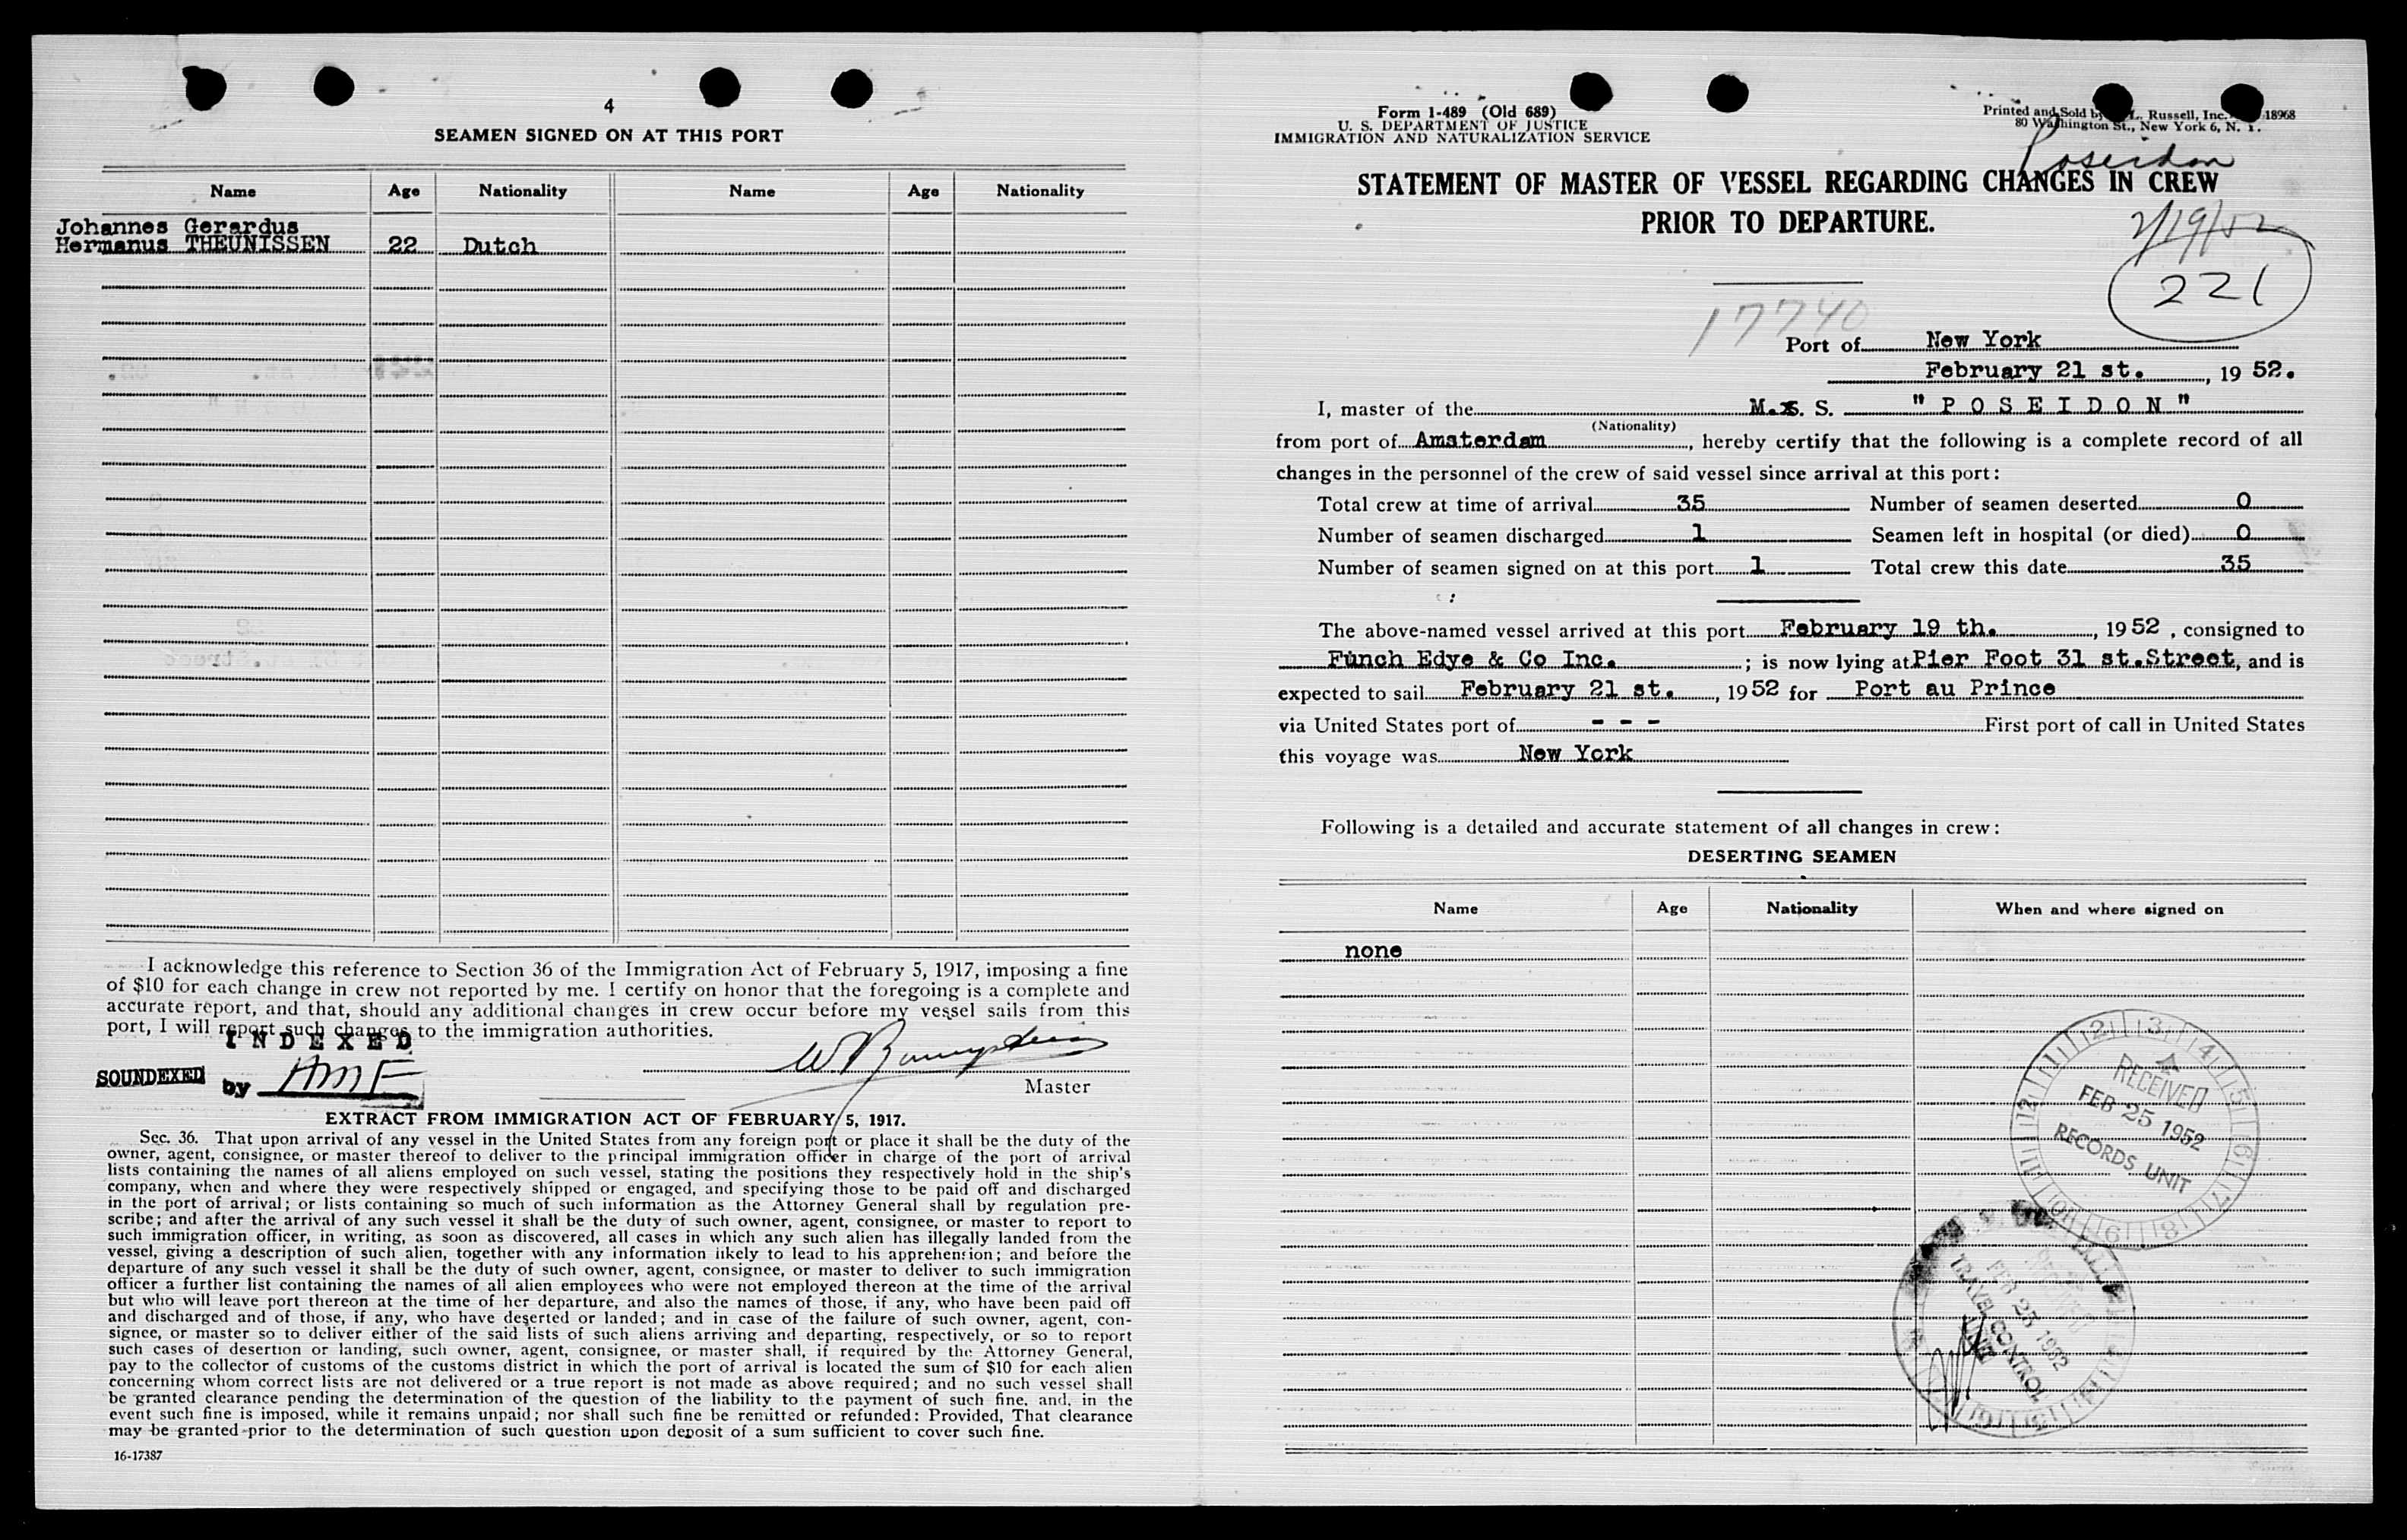 4
SEAMEN SIGNED ON AT THIS PORT
Name Age Nationality Name Age Nationality
Johannes Gerardus
Hermanus THEUNISSEN 22 Dutch
I acknowledge this reference to Section 36 of the Immigration Act of February 5, 1917, imposing a fine
of $10 for each change in crew not reported by me. I certify on honor that the foregoing is a complete and
accurate report, and that, should any additional changes in crew occur before my vessel sails from this
port, I will report such changes to the immigration authorities.
INDEXED
SOUNDEXED by AME
Master
EXTRACT FROM IMMIGRATION ACT OF FEBRUARY 5, 1917.
Sec. 36. That upon arrival of any vessel in the United States from any foreign port or place it shall be the duty of the
owner, agent, consignee, or master thereof to deliver to the principal immigration officer in charge of the port of arrival
lists containing the names of all aliens employed on such vessel, stating the positions they respectively hold in the ship's
company, when and where they were respectively shipped or engaged, and specifying those to be paid off and discharged
in the port of arrival; or lists containing so much of such information as the Attorney General shall by regulation pre-
scribe; and after the arrival of any such vessel it shall be the duty of such owner, agent, consignee, or master to report to
such immigration officer, in writing, as soon as discovered, all cases in which any such alien has illegally landed from the
vessel, giving a description of such alien, together with any information likely to lead to his apprehension; and before the
departure of any such vessel it shall be the duty of such owner, agent, consignee, or master to deliver to such immigration
officer a further list containing the names of all alien employees who were not employed thereon at the time of the arrival
but who will leave port thereon at the time of her departure, and also the names of those, if any, who have been paid off
and discharged and of those, if any, who have deserted or landed; and in case of the failure of such owner, agent, con-
signee, or master so to deliver either of the said lists of such aliens arriving and departing, respectively, or so to report
such cases of desertion or landing, such owner, agent, consignee, or master shall, if required by the Attorney General,
pay to the collector of customs of the customs district in which the port of arrival is located the sum of $10 for each alien
concerning whom correct lists are not delivered or a true report is not made as above required; and no such vessel shall
be granted clearance pending the determination of the question of the liability to the payment of such fine, and, in the
event such fine is imposed, while it remains unpaid; nor shall such fine be remitted or refunded: Provided, That clearance
may be granted prior to the determination of such question upon deposit of a sum sufficient to cover such fine.
16-17387
Form 1-489 (Old 689)
U. S. DEPARTMENT OF JUSTICE
IMMIGRATION AND NATURALIZATION SERVICE
Printed and Sold by L. Russell, Inc. 18968
80 Washington St., New York 6, N. Y.
Poseidon
STATEMENT OF MASTER OF VESSEL REGARDING CHANGES IN CREW
PRIOR TO DEPARTURE.
2/19/52
221
17740
Port of New York
February 21 st., 19 52.
I, master of the M.S. S. "POSEIDON"
(Nationality)
from port of Amsterdam, hereby certify that the following is a complete record of all
changes in the personnel of the crew of said vessel since arrival at this port:
Total crew at time of arrival 35 Number of seamen deserted 0
Number of seamen discharged 1 Seamen left in hospital (or died) 0
Number of seamen signed on at this port 1 Total crew this date 35
The above-named vessel arrived at this port February 19 th., 19 52, consigned to
Funch Edye & Co Inc.; is now lying at Pier Foot 31 st.Street, and is
expected to sail February 21 st., 19 52 for Port au Prince
via United States port of - - - First port of call in United States
this voyage was New York
Following is a detailed and accurate statement of all changes in crew:
DESERTING SEAMEN
Name Age Nationality When and where signed on
none
RECEIVED
FEB 25 1952
RECORDS UNIT
FEB 25 1952
TRAVEL CONTROL